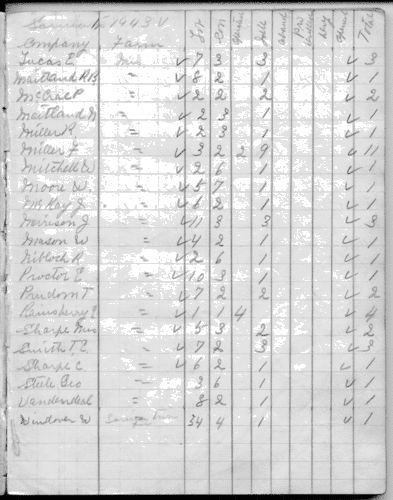 1943
Company Farm Lot Con Gas Oil Aband Dry Total
Lucas E Mrs ✓ 7 3 3 ✓ 3
Maitland R B " ✓ 8 2 1 ✓ 1
McCrae P " ✓ 2 2 2 ✓ 2
Maitland W " ✓ 2 3 1 ✓ 1
Miller R " ✓ 2 3 1 ✓ 1
Miller " ✓ 3 2 2 9 ✓ 11
Mitchell W " ✓ 2 6 1 ✓ 1
Moore W " ✓ 5 7 1 ✓ 1
McKay J " ✓ 6 2 1 ✓ 1
Morrison J " ✓ 11 3 3 ✓ 3
Mason W " ✓ 4 2 1 ✓ 1
Niblock R " ✓ 2 6 1 ✓ 1
Proctor E " ✓ 10 3 1 ✓ 1
Prudom T " ✓ 7 2 2 ✓ 2
Ramsberry " ✓ 1 1 4 ✓ 4
Sharpe Mrs " ✓ 5 3 2 ✓ 2
Smith T. E " ✓ 7 2 3 ✓ 3
Sharpe C " ✓ 6 2 1 ✓ 1
Steele Geo " 3 6 1 ✓ 1
Vandendeal " 8 2 1 ✓ 1
Windover W 34 4 1 ✓ 1